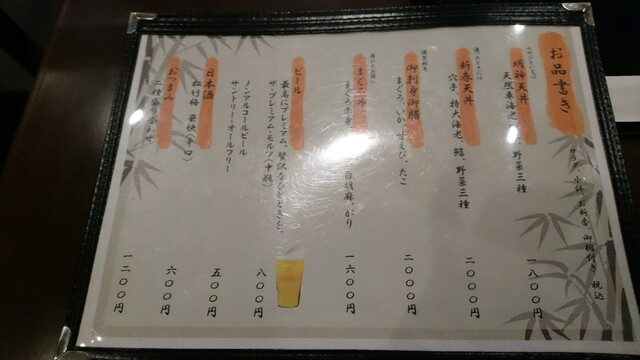 お品書き
小鉢、お新香、御椀付き 税込
明神天丼
天然車海老、野菜三種
一八〇〇円
新春天丼
穴子、特大海老、鱚、野菜三種
二〇〇〇円
御刺身御膳
まぐろ、いか、甘えび、たこ
二〇〇〇円
まぐろ丼
白胡麻、がり
一六〇〇円
ビール
最高にプレミアム、贅沢なひとときを。
ザ・プレミアム・モルツ(中瓶)
八〇〇円
ノンアルコールビール
サントリー・オールフリー
五〇〇円
日本酒
松竹梅 豪快(辛口)
六〇〇円
おつまみ
二種盛り合わせ
一二〇〇円